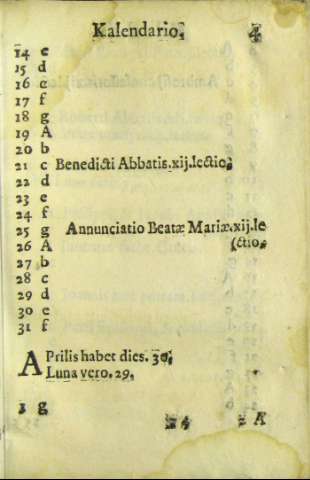 Kalendario. 4
14 e
15 d
16 e
17 f
18 g
19 A
20 b
21 c Benedicti Abbatis.xij.lectio.
22 d
23 e
24 f
25 g Annunciatio Beatæ Mariæ.xij.le
26 A (ctio.
27 b
28 c
29 d
30 e
31 f
APrilis habet dies. 30.
Luna vero. 29.
1 g
2 A